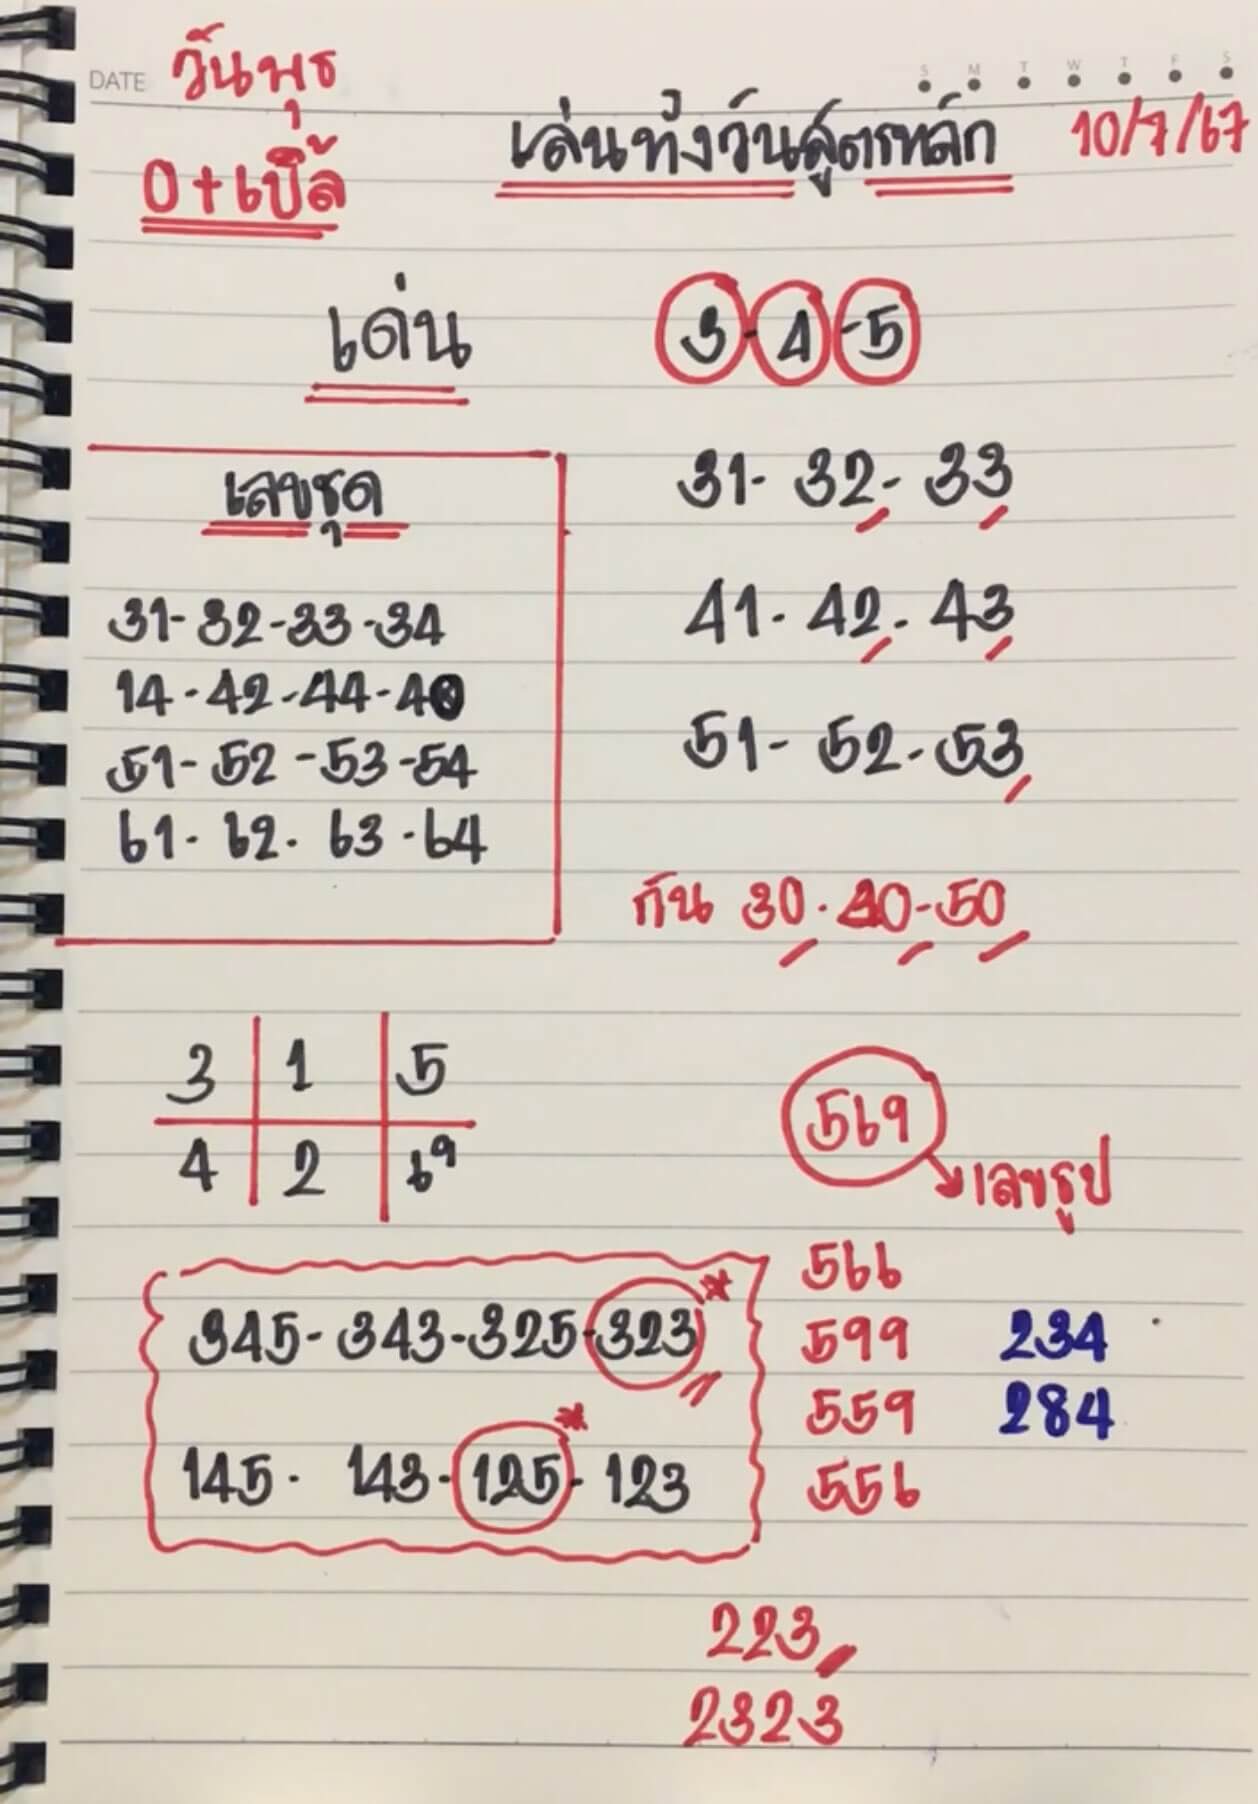 DATE วันพุธ
S M T W T F S
เล่นทั้งวันสูตรหลัก 10/7/67
0+เบิ้ล
เด่น 3-4-5
เลขชุด
31-32-33-34
14-42-44-40
51-52-53-54
61-62-63-64
31-32-33
41-42-43
51-52-53
กัน 30-40-50
3 1 5
4 2 6 9
569
เลขธูป
345-343-325-323*
145-143-125*-123
566
599 234
559 284
556
223
2323